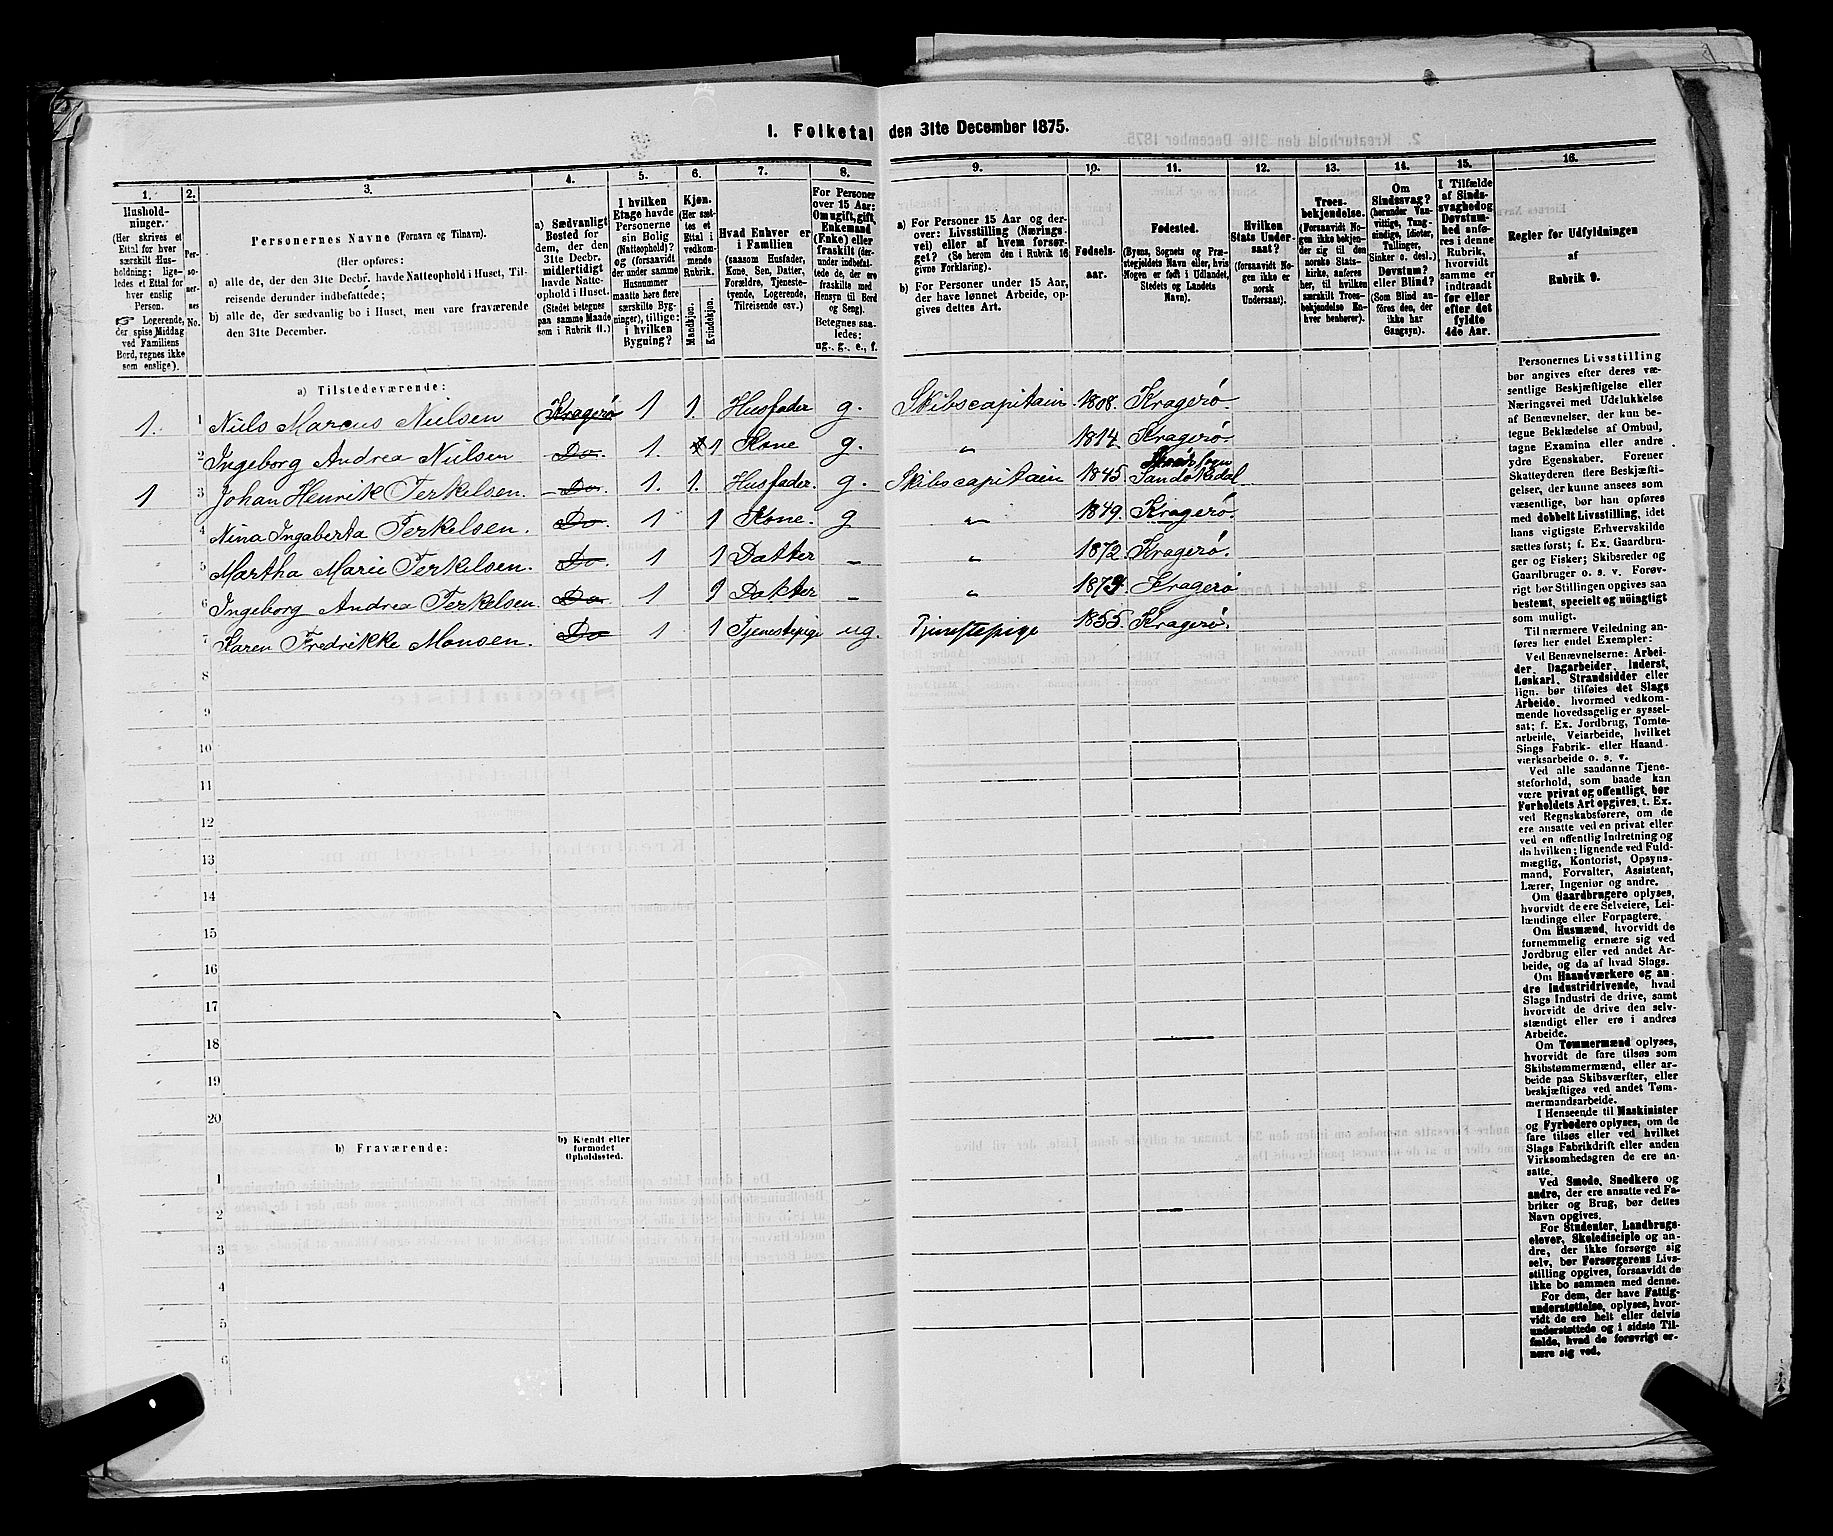 1. Folketal den 31te December 1875.
1. 2. 3. 4. 5. 6. 7. 8. 9. 10. 11. 12. 13. 14. 15. 16.
Hushold-
ninger.
(Her skrives et
Ettal for hver
særskilt Hus-
holdning; lige-
ledes et Ettal for
hver enslig
Person.
☞ Logerende,
der spise Middag
ved Familiens
Bord, regnes ikke
som enslige).
Per-
so-
ner-
nes
No.
Personernes Navne (Fornavn og Tilnavn).
(Her opføres:
a) alle de, der den 31te Decbr. havde Natteophold i Huset, Til-
reisende derunder indbefattede;
b) alle de, der sædvanlig bo i Huset, men vare fraværende
den 31te December.
a) Sædvanligt
Bosted for
dem, der den
31te Decbr.
midlertidigt
havde Natte-
ophold i Huset.
(Stedet betegnes
paa samme Maade
som i Rubrik 11.)
I hvilken
Etage havde
Personerne
sin Bolig
(Natteophold)?
og (forsaavidt
der under samme
Husnummer
maatte høre flere
særskilte Byg-
ninger), tillige:
i hvilken
Bygning?
Kjøn.
(Her sæt-
tes et
Ettal i
vedkom-
mende
Rubrik.
Mandkjøn.
Kvindekjøn.
Hvad Enhver er
i Familien
(saasom Husfader,
Kone, Søn, Datter,
Forældre, Tjeneste-
tyende, Logerende,
Tilreisende osv.)
For Personer
over 15 Aar:
Om ugift, gift,
Enkemand
(Enke) eller
fraskilt (der-
under indbefat-
tede de, der ere
fraskilte med
Hensyn til Bord
og Seng).
Betegnes saa-
ledes:
ug., g., e., f.
a) For Personer 15 Aar og der-
over: Livsstilling (Nærings-
vei) eller af hvem forsør-
get? (Se herom den i Rubrik 16
givne Forklaring).
b) For Personer under 15 Aar,
der have lønnet Arbeide, op-
gives dettes Art.
Fødsels-
aar.
Fødested.
(Byens, Sognets og Præ-
stegjeldets Navn eller, hvis
Nogen er født i Udlandet,
Stedets og Landets
Navn).
Hvilken
Stats Under-
saat?
(forsaavidt No-
gen ikke er
norsk
Undersaat).
Troes-
bekjendelse.
(Forsaavidt No-
gen ikke bekjen-
der sig til den
norske Stats-
kirke, anføres
her, til hvilken
særskilt Troes-
bekjendelse En-
hver henhører).
Om
Sindssvag?
(herunder Van-
vittige, Tung-
sindige, Idioter,
Tullinger,
Sinker o. desl.)
Døvstum?
eller Blind?
(Som Blind an-
føres den, der
ikke har
Gangsyn).
I Tilfælde
af Sinds-
svaghed og
Døvstum-
hed anfø-
res i denne
Rubrik,
hvorvidt
samme er
indtraadt
før eller
efter det
fyldte
4de Aar.
Regler for Udfyldningen
af
Rubrik 9.
a) Tilstedeværende:
1. 1 Niels Marcus Nielsen Kragerø 1 1. Husfader g. Skibscapitain 1808. Kragerø.
2 Ingeborg Andrea Nielsen Do. 1. 1 Kone g. " 1814. Kragerø.
1 3 Johan Henrik Terkelsen. Do. 1. 1. Husfader. g. Skibscapitain 1845 Sandøkedal
4 Nina Ingaberta Terkelsen. Do. 1 1 Kone. g " 1849. Kragerø.
5 Martha Marie Terkelsen. Do. 1 1 Datter - " 1872 Kragerø.
6 Ingeborg Andrea Terkelsen. Do 1 1 Datter - " 1874 Kragerø
7 Karen Fredrikke Monsen. Do 1 1 Tjenestepige ug. Tjenestepige 1855. Kragerø.
8
9
10
11
12
13
14
15
16
17
18
19
20
b) Fraværende:
b) Kjendt eller
formodet
Opholdssted.
1
2
3
4
5
6
Personernes Livsstilling
bør angives efter deres væ-
sentlige Beskjæftigelse eller
Næringsvei med Udelukkelse
af Benævnelser, der kun be-
tegne Beklædelse af Ombud,
tagne Examina eller andre
ydre Egenskaber. Forener
Skatteyderen flere Beskjæfti-
gelser, der kunne ansees som
væsentlige, bør han opføres
med dobbelt Livsstilling, idet
hans vigtigste Erhvervskilde
sættes først; f. Ex. Gaardbru-
ger og Fisker; Skibsreder og
Gaardbruger o. s. v. Forøv-
rigt bør Stillingen opgives saa
bestemt, specielt og nøiagtigt
som muligt.
Til nærmere Veiledning an-
føres her endel Exempler:
Ved Benævnelserne: Arbei-
der, Dagarbeider, Inderst,
Løskarl, Strandsidder eller
lign. bør tilføies det Slags
Arbeide, hvormed vedkom-
mende hovedsagelig er syssel-
sat; f. Ex. Jordbrug, Tomte-
arbeide, Veiarbeide, hvilket
Slags Fabrik- eller Haand-
værksarbeide o. s. v.
Ved alle saadanne Tjene-
steforhold, som baade kan
være privat og offentligt, bør
Forholdets Art opgives, t. Ex.
ved Regnskabsførere, om de
ere ansatte ved en privat eller
en offentlig Indretning og
da hvilken; lignende ved Fuld-
mægtig, Kontorist, Opsyns-
mand, Forvalter, Assistent,
Lærer, Ingeniør og andre.
Om Gaardbrugere oplyses,
hvorvidt de ere Selveiere, Lei-
lændinge eller Forpagtere.
Om Husmænd, hvorvidt de
fornemmelig ernære sig ved
Jordbrug eller ved andet Ar-
beide, og da af hvad Slags.
Om Haandværkere og an-
dre Industridrivende, hvad
Slags Industri de drive, samt
hvorvidt de drive den selv-
stændigt eller ere i andres
Arbeide.
Om Tømmermænd oplyses,
hvorvidt de fare tilsøs som
Skibstømmermænd, eller ar-
beide paa Skibsværfter, eller
beskjæftiges ved andet Tøm-
mermandsarbeide.
I Henseende til Maskinister
og Fyrbødere oplyses, om de
fare tilsøs eller ved hvilket
Slags Fabrikdrift eller anden
Virksomhedsgren de ere an-
satte.
Ved Smede, Snedkere og
andre, der ere ansatte ved Fa-
briker og Brug, bør dettes
Navn opgives.
For Studenter, Landbrugs-
elever, Skoledisciple og an-
dre, der ikke forsørge sig
selv, bør Forsørgerens Livs-
stilling opgives, forsaavidt de
ikke bo sammen med denne.
For dem, der have Fattig-
understøttelse, oplyses, hvor-
vidt de ere helt eller delvis
understøttede og i sidste Til-
fælde, hvad de forøvrigt er-
nære sig ved.